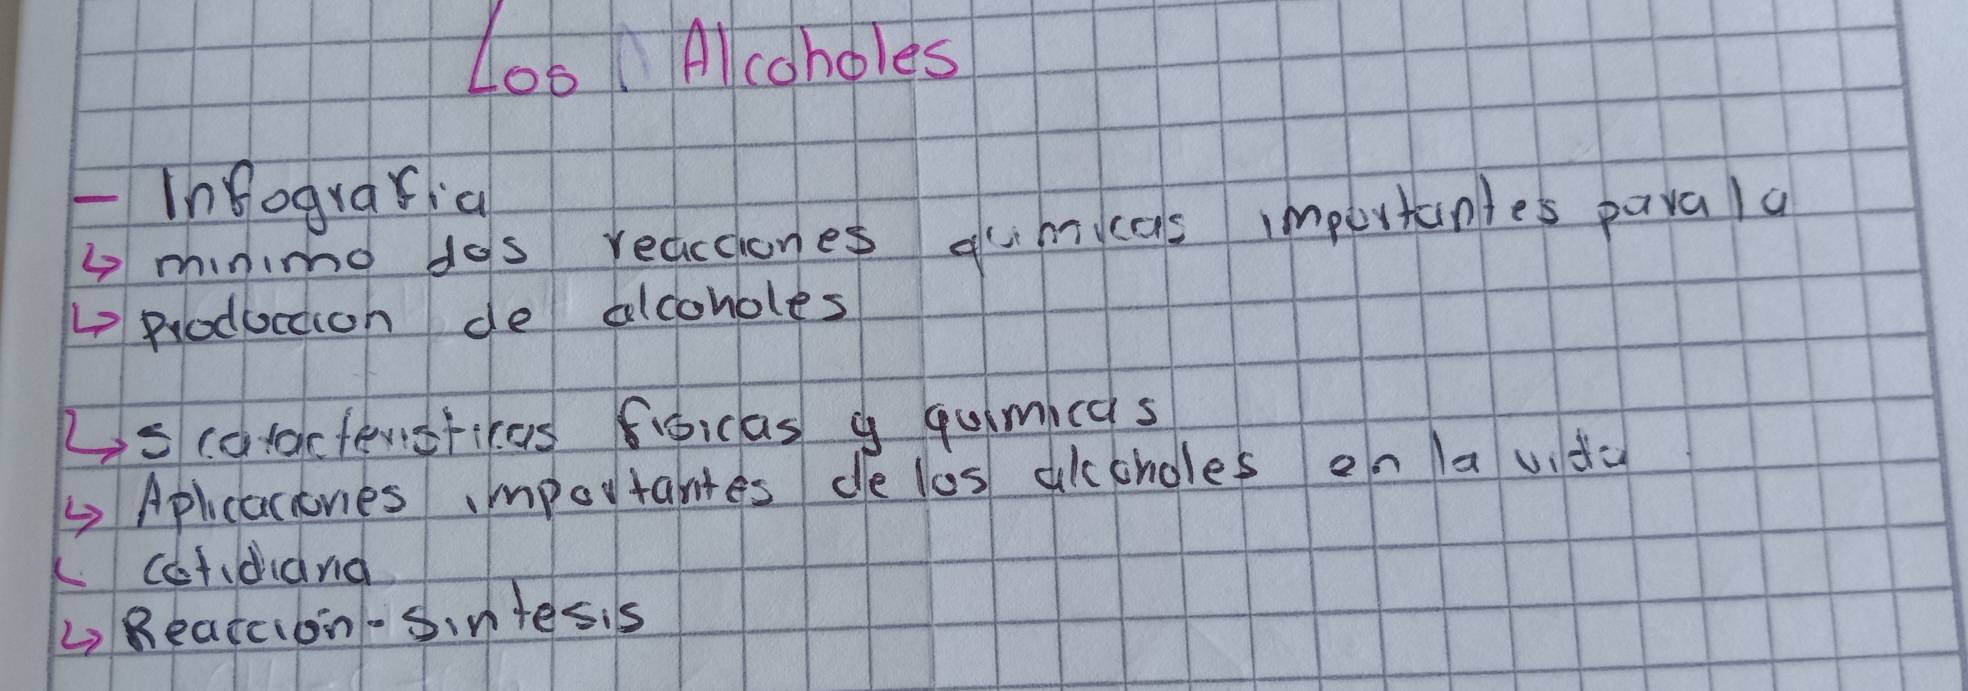 Los Alcoholes
- Infografia
↳ minimo dos reacciones quimicas importantes para la
↳ Producción de alcoholes
↳ 5 caracteristicas fisicas y quimicas
↳ Aplicaciones importantes de los alcoholes en la vida
cotidiana
↳ Reacción - Sintesis